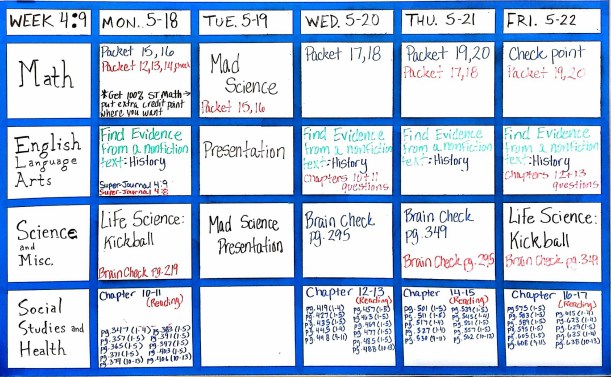 WEEK 4:9
MON. 5-18
TUE. 5-19
WED. 5-20
THU. 5-21
FRI. 5-22
Math
Packet 15,16
Packet 12,13,14
*Get 100% ST Math→
put extra credit point
where you want
Mad
Science
Packet 15,16
Packet 17,18
Packet 19,20
Packet 17,18
Check point
Packet 19,20
English
Language
Arts
Find Evidence
from a nonfiction
text:History
Super-Journal 4:9
Super-Journal 4:8
Presentation
Find Evidence
from a nonfiction
text:History
Chapters 10+11
questions
Find Evidence
from a nonfiction
text:History
Find Evidence
from a nonfiction
text:History
Chapters 12+13
questions
Science
and
Misc.
Life Science:
Kickball
Brain Check pg.219
Mad Science
Presentation
Brain Check
pg.295
Brain Check
pg.349
Brain Check pg.295
Life Science:
Kickball
Brain Check pg.349
Social
Studies and
Health
Chapter 10-11
(Reading)
pg.347(1-4)
pg.357(1-5)
pg.365(1-5)
pg.371(1-5)
Chapter 12-13
(Reading)
pg.419(1-4)
pg.427(1-5)
pg.435(1-5)
pg.445(1-4)
pg.457(1-5)
pg.477(1-5)
pg.485(1-5)
pg.488(10-13)
Chapter 14-15
(Reading)
pg.501(1-5)
pg.511(1-5)
pg.517(1-4)
Chapter 16-17
(Reading)
pg.575(1-5)
pg.583(1-5)
pg.589(1-5)
pg.595(1-5)